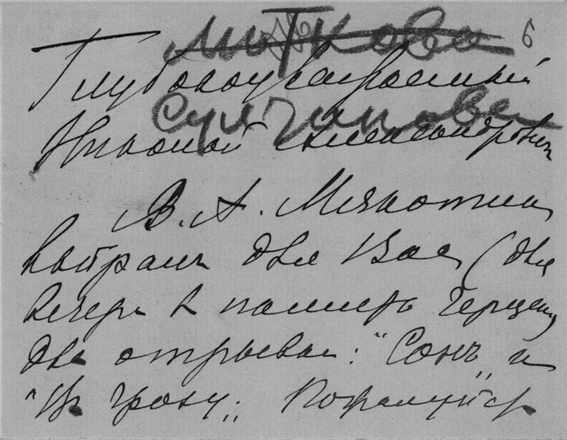 6
Глубокоуважаемый
Султанова
Николай Александровичъ
В. А. Мякотинъ
выбралъ для Васъ (для
вечера въ память Герцена)
два отрывка: "Сонъ" и
"Въ грозу". Пожалуйста